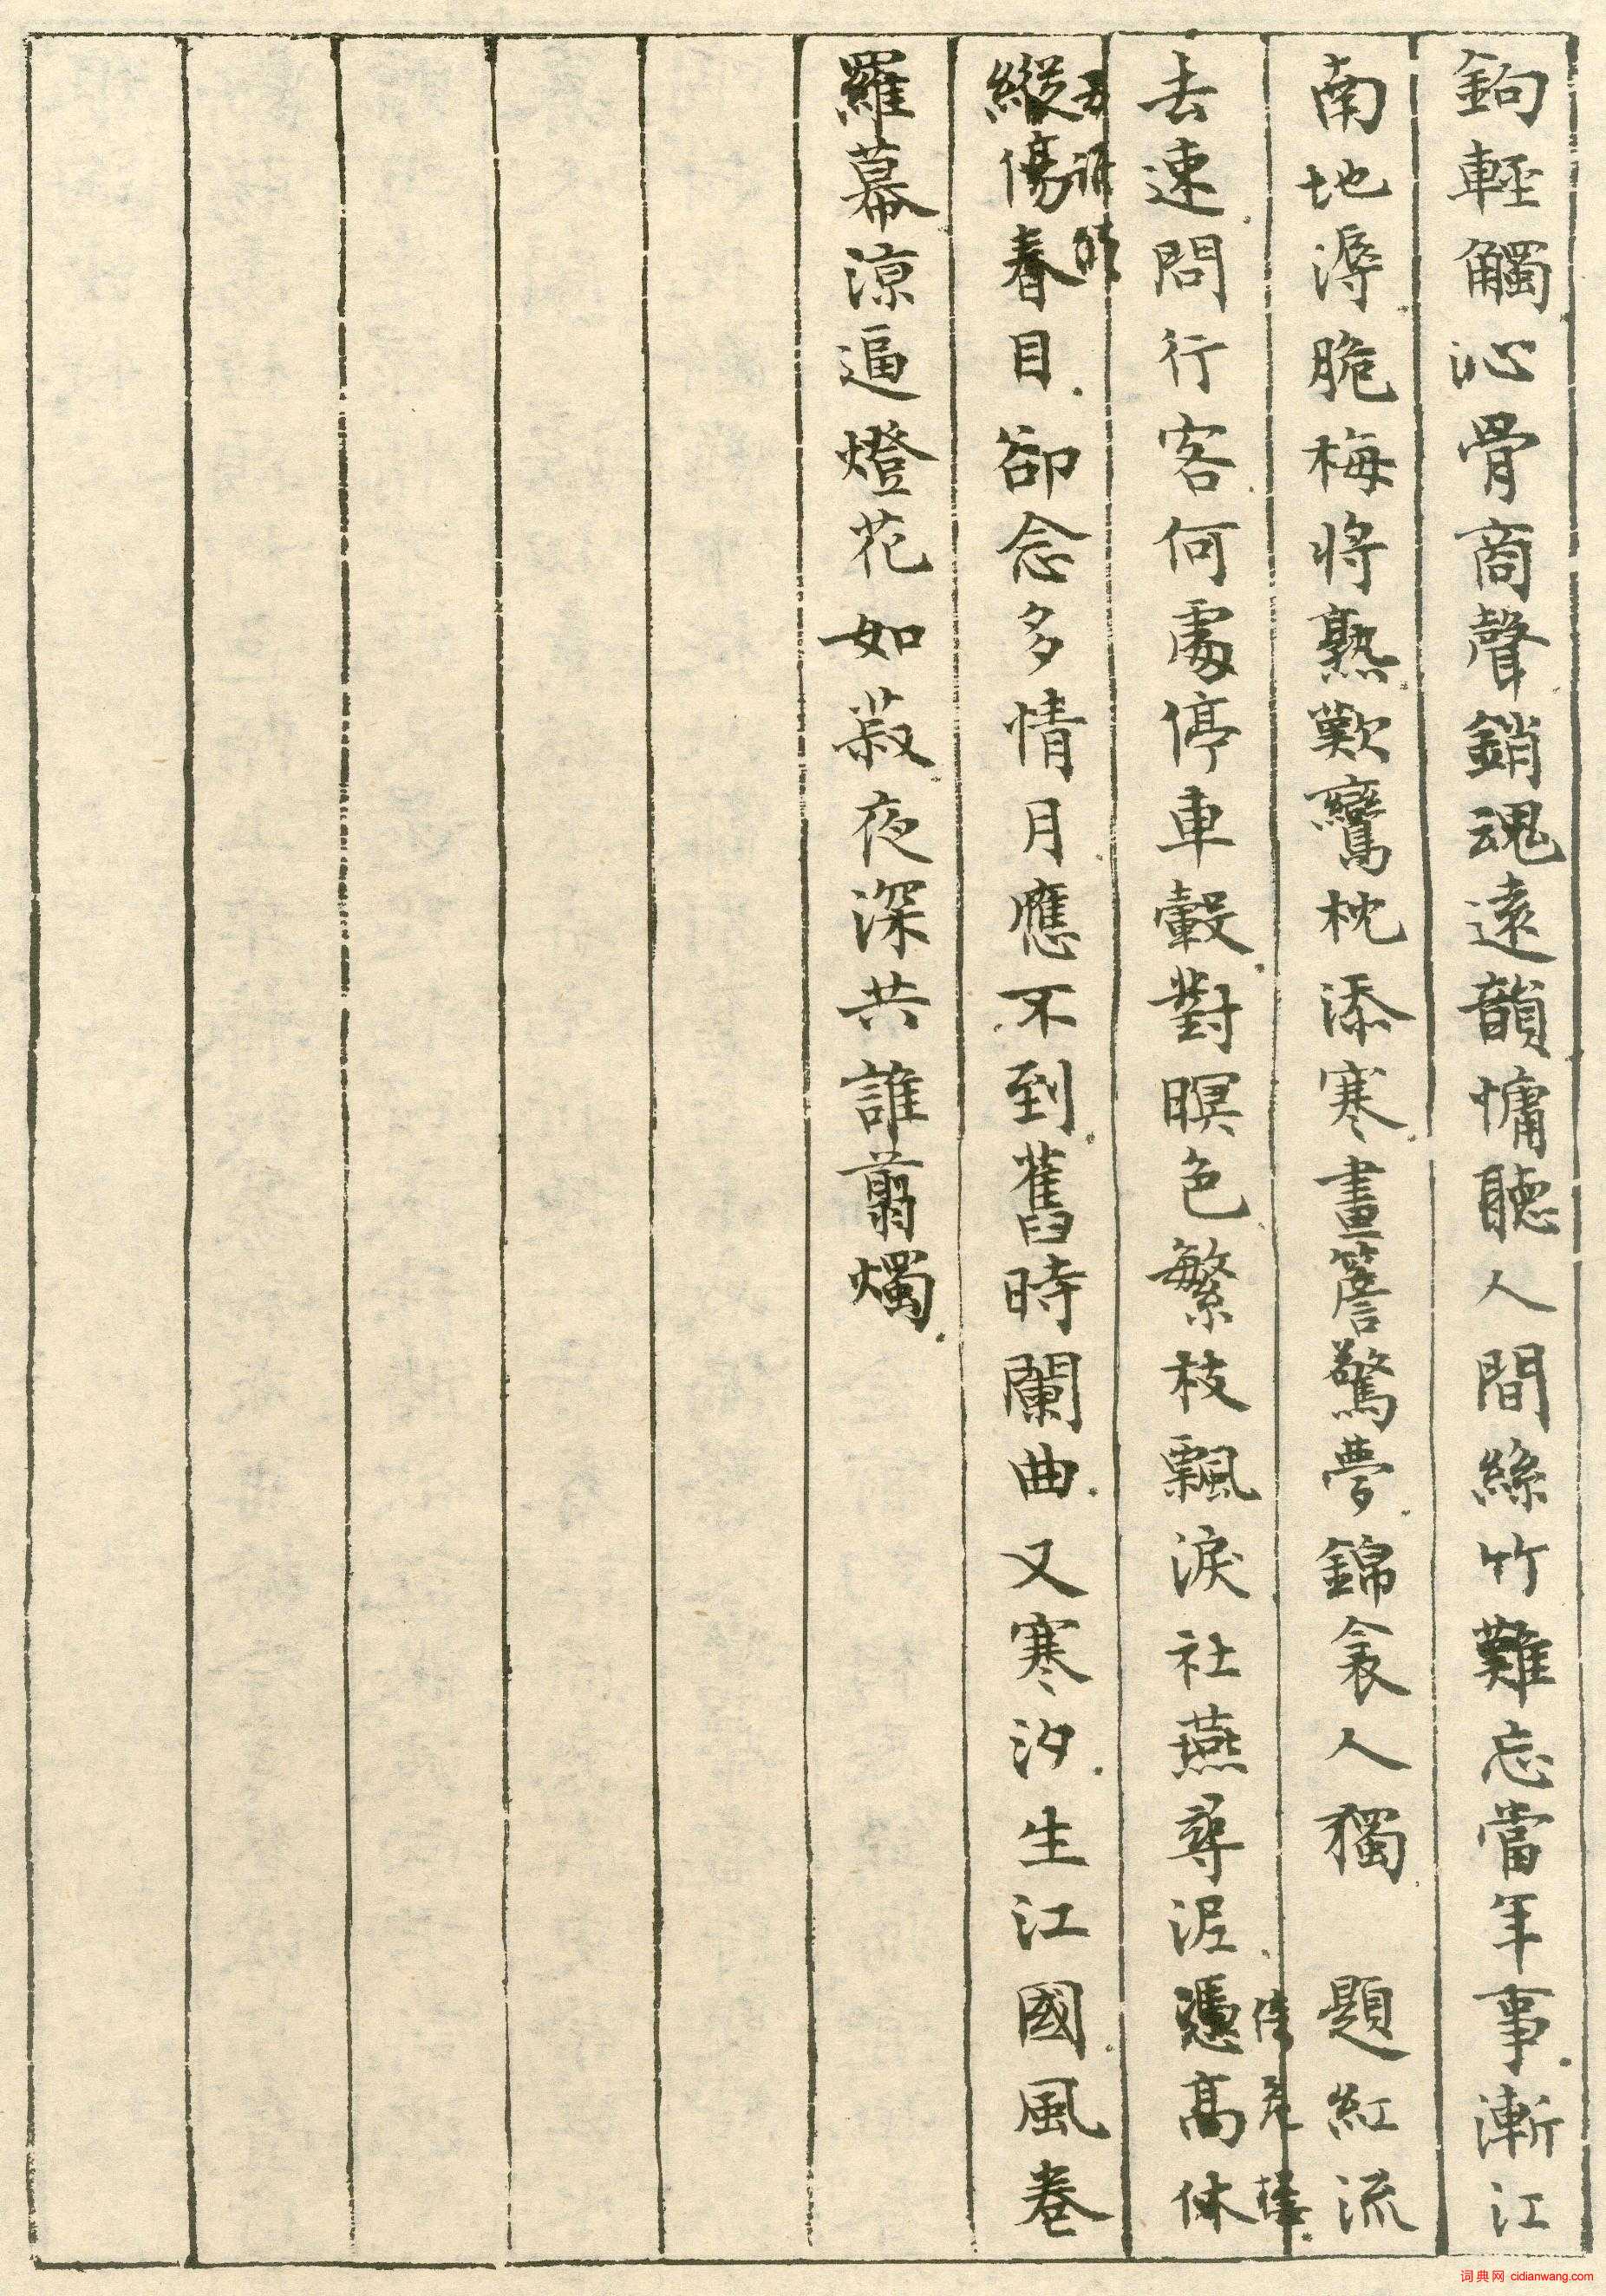 鉤輕觸沁骨商聲銷魂遠韻慵聽人間絲竹難忘當年事漸江
南地溽脆梅將熟歎鸞枕添寒畫簷驚夢錦衾人獨　題紅流
去速問行客何處停車轂對暝色繁枝飄淚社燕尋泥憑高休
縱傷春目卻念多情月應不到舊時闌曲又寒汐生江國風卷
羅幕涼逼燈花如菽夜深共誰翦燭
词典网 cidianwang.com